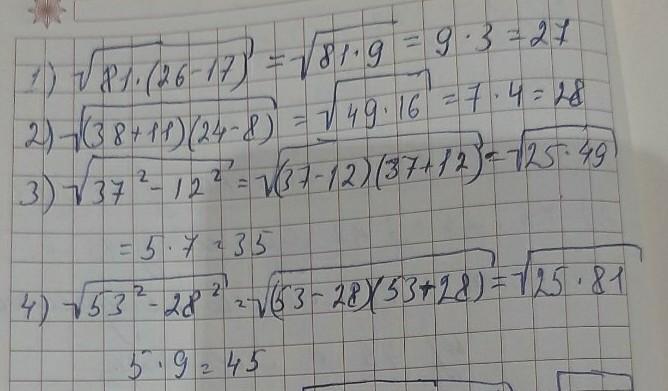 1) √81·(26-17) = √81·9 = 9·3 = 27
2) √(38+11)(24-8) = √49·16 = 7·4 = 28
3) √37²-12² = √(37-12)(37+12) = √25·49
= 5·7 = 35
4) √53²-28² = √(53-28)(53+28) = √25·81
5·9 = 45